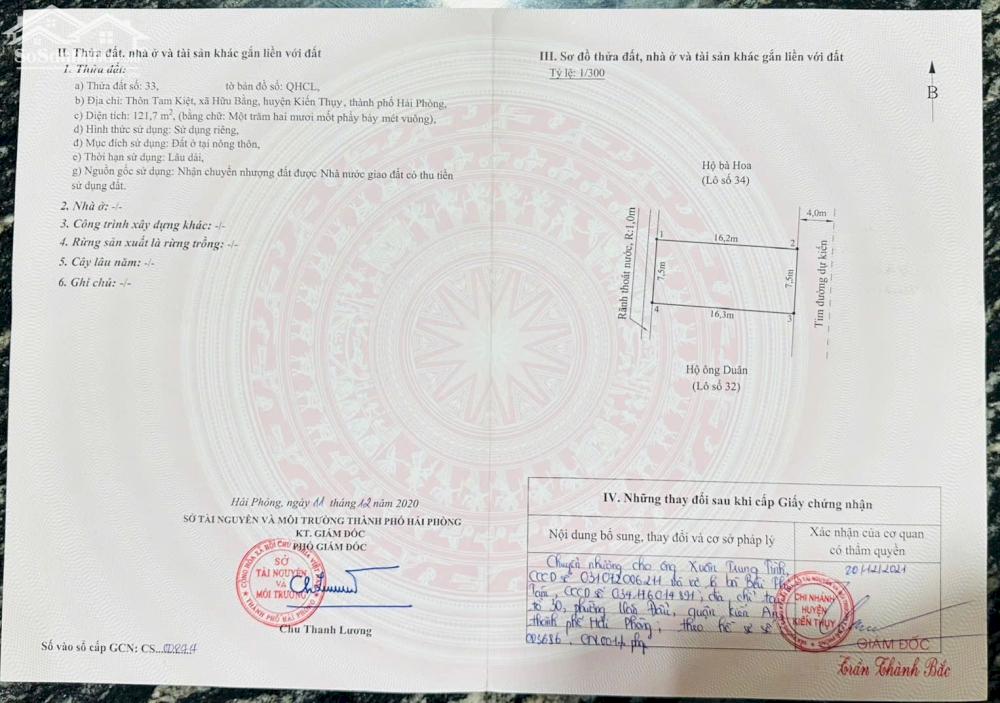 II. Thửa đất, nhà ở và tài sản khác gắn liền với đất
1. Thửa đất:
a) Thửa đất số: 33, tờ bản đồ số: QHCL,
b) Địa chỉ: Thôn Tam Kiệt, xã Hữu Bằng, huyện Kiến Thụy, thành phố Hải Phòng,
c) Diện tích: 121,7 m², (bằng chữ: Một trăm hai mươi mốt phẩy bảy mét vuông),
d) Hình thức sử dụng: Sử dụng riêng,
đ) Mục đích sử dụng: Đất ở tại nông thôn,
e) Thời hạn sử dụng: Lâu dài,
g) Nguồn gốc sử dụng: Nhận chuyển nhượng đất được Nhà nước giao đất có thu tiền
sử dụng đất.
2. Nhà ở: -/-
3. Công trình xây dựng khác: -/-
4. Rừng sản xuất là rừng trồng: -/-
5. Cây lâu năm: -/-
6. Ghi chú: -/-
Hải Phòng, ngày 11 tháng 12 năm 2020
SỞ TÀI NGUYÊN VÀ MÔI TRƯỜNG THÀNH PHỐ HẢI PHÒNG
KT. GIÁM ĐỐC
PHÓ GIÁM ĐỐC
SỞ
TÀI NGUYÊN
VÀ
MÔI TRƯỜNG
Chu Thanh Lương
Số vào sổ cấp GCN: CS
III. Sơ đồ thửa đất, nhà ở và tài sản khác gắn liền với đất
Tỷ lệ: 1/300
B
Hộ bà Hoa
(Lô số 34)
4,0m
1
16,2m
2
Rãnh thoát nước, R:1,0m
7,5m
7,5m
Tim đường dự kiến
4
16,3m
3
Hộ ông Duân
(Lô số 32)
IV. Những thay đổi sau khi cấp Giấy chứng nhận
Nội dung bổ sung, thay đổi và cơ sở pháp lý
Xác nhận của cơ quan
có thẩm quyền
Chuyển nhượng cho ông Xuân Trung Tình,
CCCD số 031072006211 và
CCCD số địa chỉ
tổ 30, phường quận Kiến An
thành phố Hải Phòng; theo hồ sơ số
20/12/2021
CHI NHÁNH
HUYỆN
KIẾN THỤY
GIÁM ĐỐC
Trần Thành Bắc